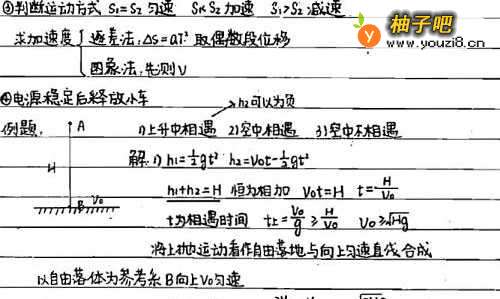 ③判断运动方式 S₁=S₂ 匀速 S₁<S₂ 加速 S₁>S₂ 减速
柚子吧
www.youzi8.cn
求加速度 { 逐差法:△S=aT² 取偶数段位移
图象法,先测V
④电源稳定后释放小车
h₂可以为负
例题. A 1)上升中相遇 2)空中相遇 3)空中不相遇
H 解.1) h₁=½gt² h₂=V₀t-½gt²
h₁+h₂=H 恒为相加 V₀t=H t=H/V₀
B V₀ t为相遇时间 t上=V₀/g ≥ H/V₀ V₀≥√Hg
将上抛运动看作自由落地与向上匀速直线合成
以自由落体为参考系B向上V₀匀速